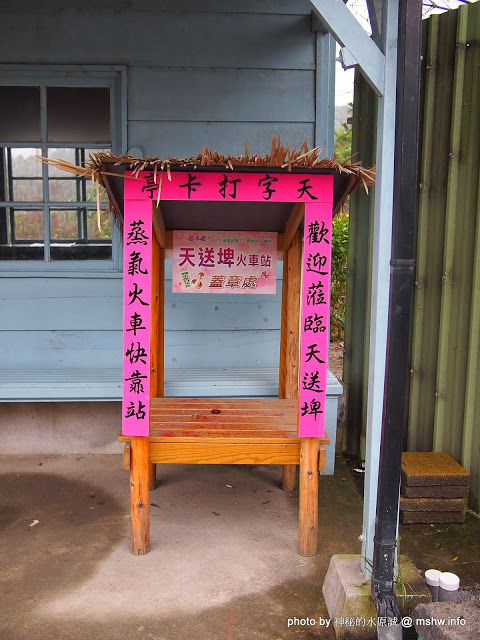 天字打卡亭
歡迎蒞臨天送埤
蒸氣火車快靠站
天送埤火車站
蓋章處
photo by 神秘的水原誠 @ mshw.info